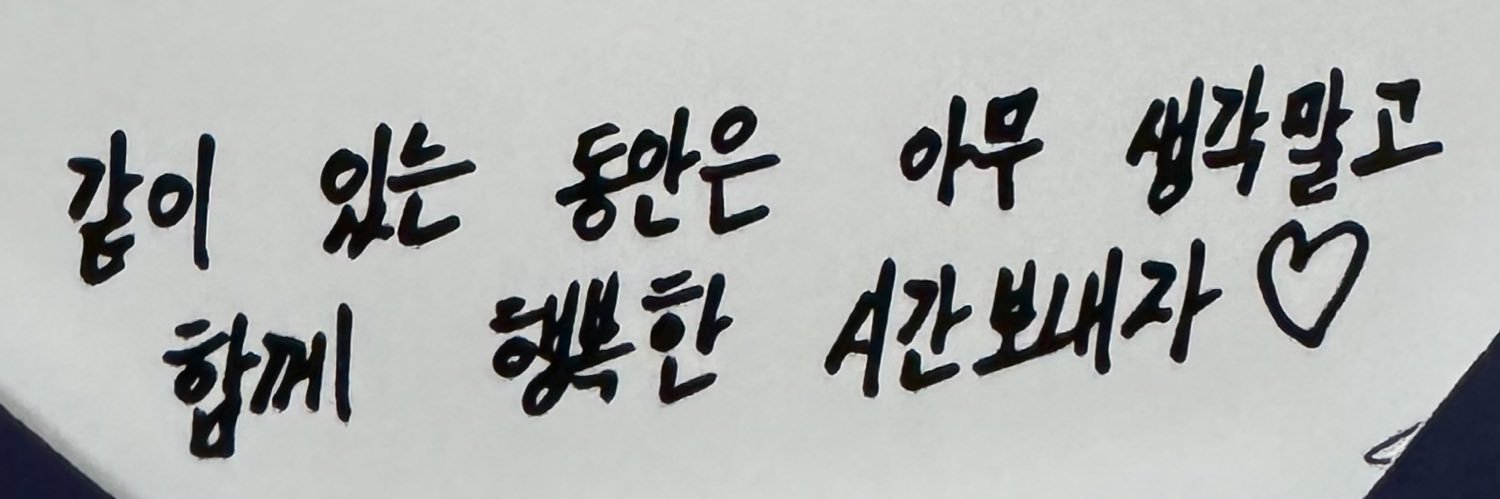 같이 있는 동안은 아무 생각말고
함께 행복한 시간보내자♡